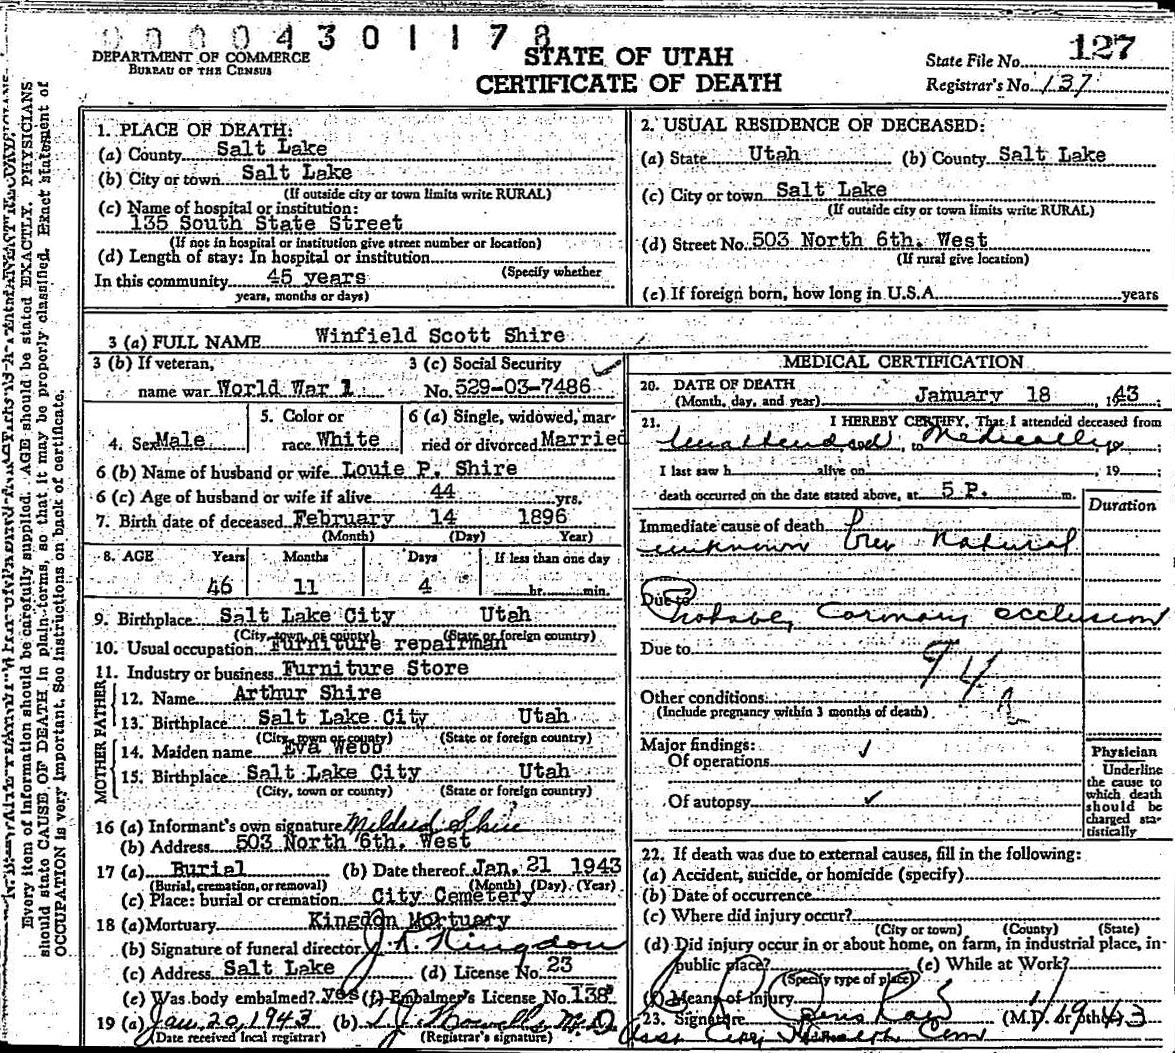 00004301178
DEPARTMENT OF COMMERCE
BUREAU OF THE CENSUS
STATE OF UTAH
CERTIFICATE OF DEATH
State File No. 127
Registrar's No. 137
Every item of information should be carefully supplied. AGE should be stated EXACTLY. PHYSICIANS
should state CAUSE OF DEATH in plain terms, so that it may be properly classified. Exact statement of
OCCUPATION is very important. See instructions on back of certificate.
1. PLACE OF DEATH:
(a) County Salt Lake
(b) City or town Salt Lake
(If outside city or town limits write RURAL)
(c) Name of hospital or institution:
135 South State Street
(If not in hospital or institution give street number or location)
(d) Length of stay: In hospital or institution
(Specify whether
In this community 45 years
years, months or days)
2. USUAL RESIDENCE OF DECEASED:
(a) State Utah (b) County Salt Lake
(c) City or town Salt Lake
(If outside city or town limits write RURAL)
(d) Street No. 503 North 6th. West
(If rural give location)
(e) If foreign born, how long in U.S.A. years
3 (a) FULL NAME Winfield Scott Shire
3 (b) If veteran, 3 (c) Social Security
name war World War 1 No. 529-03-7486
4. Sex Male 5. Color or race White 6 (a) Single, widowed, married or divorced Married
6 (b) Name of husband or wife Louie P. Shire
6 (c) Age of husband or wife if alive 44 yrs.
7. Birth date of deceased February 14 1896
(Month) (Day) Year)
8. AGE Years Months Days If less than one day
46 11 4 hr. min.
9. Birthplace Salt Lake City Utah
(City, town, or county) (State or foreign country)
10. Usual occupation Furniture repairman
11. Industry or business Furniture Store
FATHER
12. Name Arthur Shire
13. Birthplace Salt Lake City Utah
(City, town or county) (State or foreign country)
MOTHER
14. Maiden name Eva Webb
15. Birthplace Salt Lake City Utah
(City, town or county) (State or foreign country)
16 (a) Informant's own signature Mildred Shire
(b) Address 503 North 6th. West
17 (a) Burial (b) Date thereof Jan. 21 1943
(Burial, cremation, or removal) (Month) (Day) (Year)
(c) Place: burial or cremation City Cemetery
18 (a) Mortuary Kingdon Mortuary
(b) Signature of funeral director J. Kingdon
(c) Address Salt Lake (d) License No. 23
(e) Was body embalmed? yes (f) Embalmer's License No. 138
19 (a) Jan 20, 1943 (b) M.D.
(Date received local registrar) (Registrar's signature)
MEDICAL CERTIFICATION
20. DATE OF DEATH
(Month, day, and year) January 18 1943
21. I HEREBY CERTIFY, That I attended deceased from
unattended to Medically
I last saw h alive on , 19 ;
death occurred on the date stated above, at 5 P. m.
Duration
Immediate cause of death
unknown Natural
Due to
Probably Coronary occlusion
Due to
94
Other conditions
(Include pregnancy within 3 months of death)
Major findings:
Of operations ✓
Of autopsy ✓
Physician
Underline
the cause to
which death
should be
charged sta-
tistically
22. If death was due to external causes, fill in the following:
(a) Accident, suicide, or homicide (specify)
(b) Date of occurrence
(c) Where did injury occur?
(City or town) (County) (State)
(d) Did injury occur in or about home, on farm, in industrial place, in
public place? (e) While at Work?
(Specify type of place)
(f) Means of Injury
23. Signature (M.D. or other) 1/19/43
City Health Com